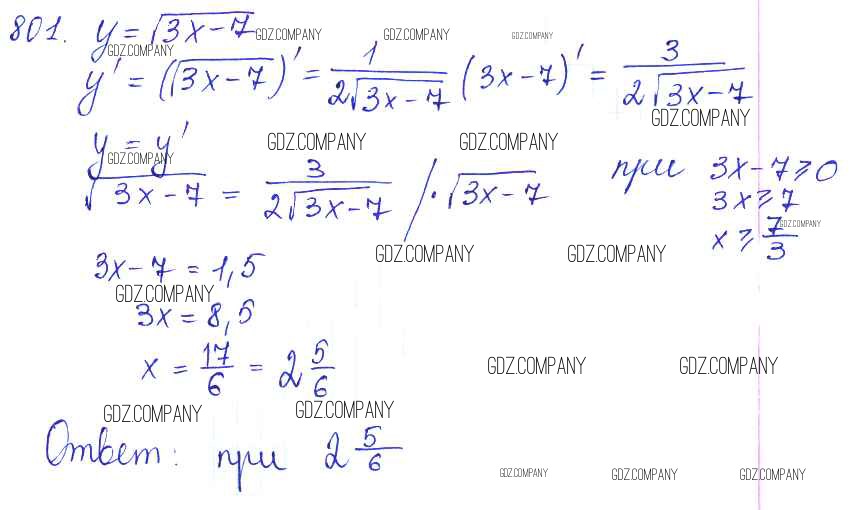 801. y = √(3x-7) GDZ.COMPANY GDZ.COMPANY GDZ.COMPANY
GDZ.COMPANY
y' = (√(3x-7))' = 1/(2√(3x-7)) (3x-7)' = 3/(2√(3x-7))
GDZ.COMPANY
y = y' GDZ.COMPANY GDZ.COMPANY
GDZ.COMPANY
√(3x-7) = 3/(2√(3x-7)) /·√(3x-7) при 3x-7⩾0
3x⩾7
GDZ.COMPANY
x⩾7/3
GDZ.COMPANY GDZ.COMPANY
3x-7 = 1,5
GDZ.COMPANY
3x = 8,5
x = 17/6 = 2 5/6 GDZ.COMPANY GDZ.COMPANY
GDZ.COMPANY GDZ.COMPANY
Ответ: при 2 5/6
GDZ.COMPANY GDZ.COMPANY GDZ.COMPANY